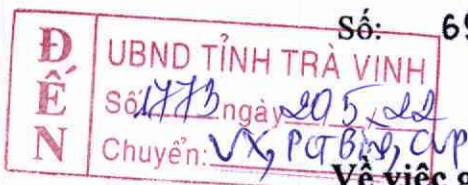 Số: 69
ĐẾN
UBND TỈNH TRÀ VINH
Số 1773 ngày 20.5.22
Chuyển: VX, PCT Bình, CVP
Về việc